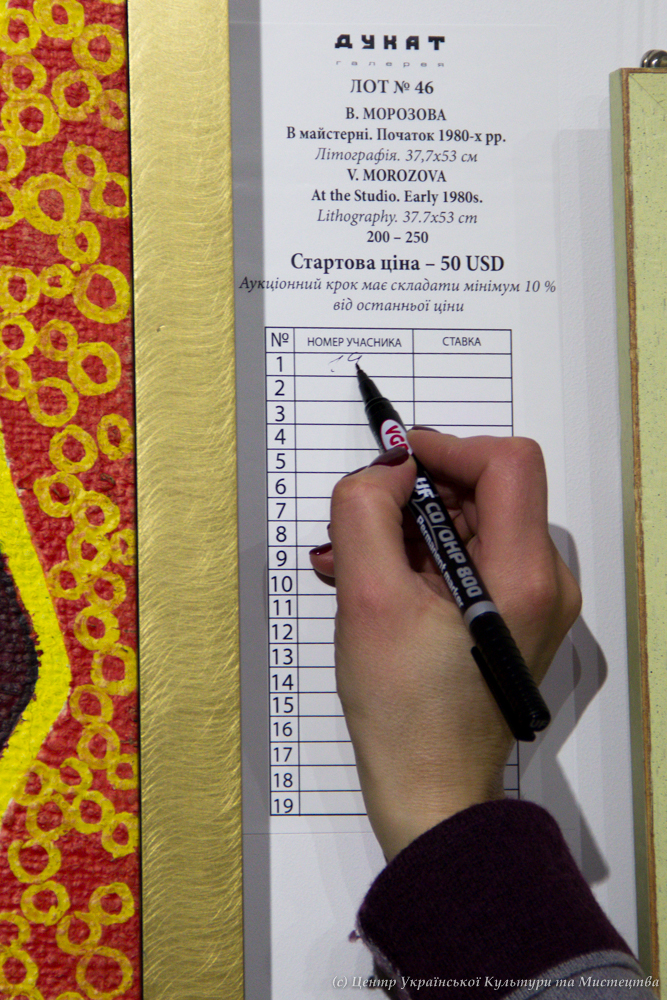 ДУКАТ
галерея
ЛОТ № 46
В. МОРОЗОВА
В майстерні. Початок 1980-х рр.
Літографія. 37,7х53 см
V. MOROZOVA
At the Studio. Early 1980s.
Lithography. 37.7x53 cm
200 – 250
Стартова ціна – 50 USD
Аукціонний крок має складати мінімум 10 %
від останньої ціни
№ НОМЕР УЧАСНИКА СТАВКА
1 19
2
3
4
5
6
7
8
9
10
11
12
13
14
15
16
17
18
19
CD/OHP 800
Permanent marker
(c) Центр Української Культури та Мистецтва